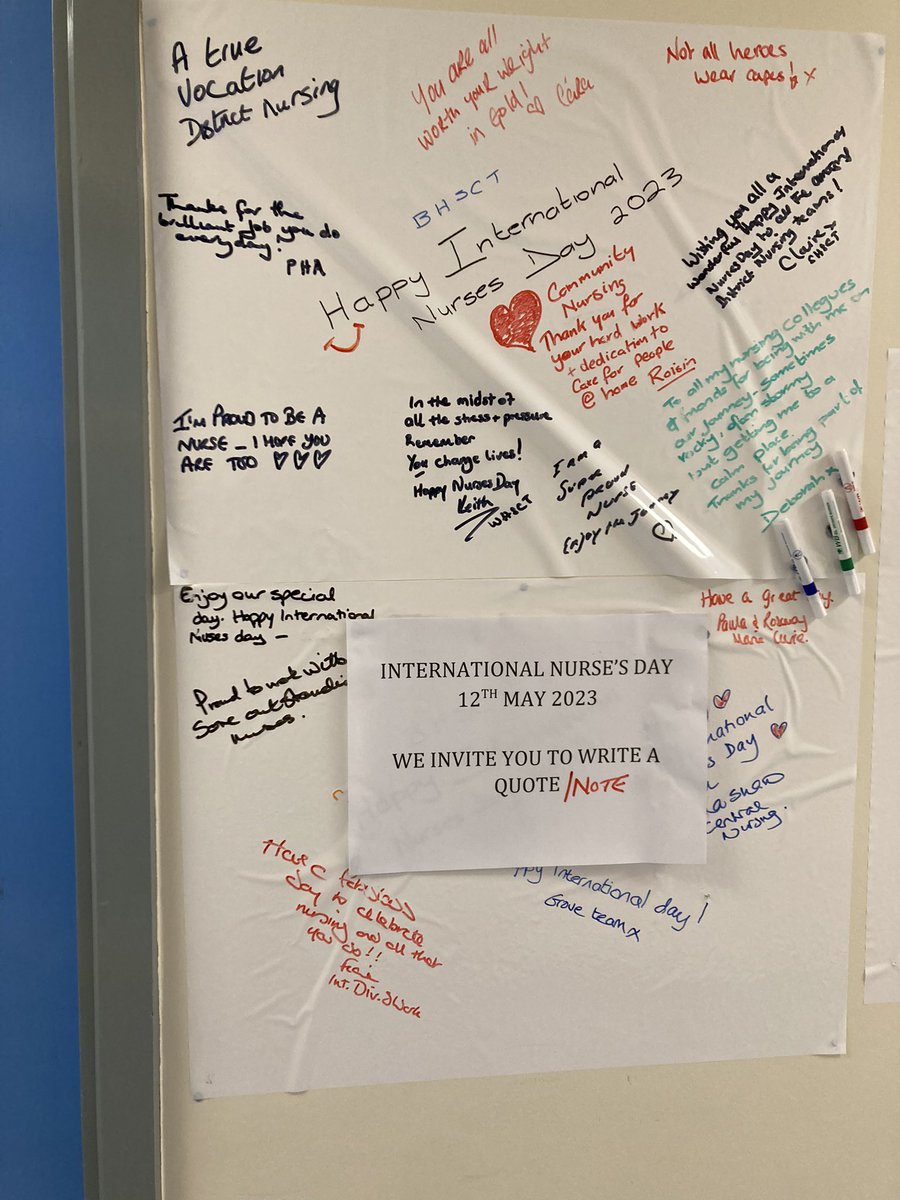 A true
Vocation
District Nursing
You are all
worth your weight
in Gold!
Not all heroes
wear capes! x
Thanks for the
brilliant job you do
everyday!
PHA
BHSCT
Happy International
Nurses Day 2023
Wishing you all a
wonderful Happy International
Nurses Day to our
District Nursing teams!
Claire x
Community
Nursing
Thank you for
your hard work
+ dedication to
Care for people
@ home Roisin
To all my nursing collegues
& friends for being with me on
our journey, sometimes
rocky, often stormy
but getting me to a
calm place.
Thanks for being part of
my journey
Deborah x
I'M PROUD TO BE A
NURSE _ I HOPE YOU
ARE TOO ♡♡♡
In the midst of
all the stress + pressure
Remember
You change lives!
Happy Nurses Day
Keith
WHSCT
I am a
Super
Proud
Nurse
Enjoy the Journey
Enjoy our special
day. Happy International
Nurses day –
Proud to work with
Some outstanding
nurses.
Have a great
Paula & Rosemary
Marie Curie.
INTERNATIONAL NURSE'S DAY
12TH MAY 2023
WE INVITE YOU TO WRITE A
QUOTE/NOTE
national
s Day
Central
Nursing.
ppy International day!
Grove team x
Have a fabulous
day to celebrate
nursing and all that
you do!!
Int. Div. & Work